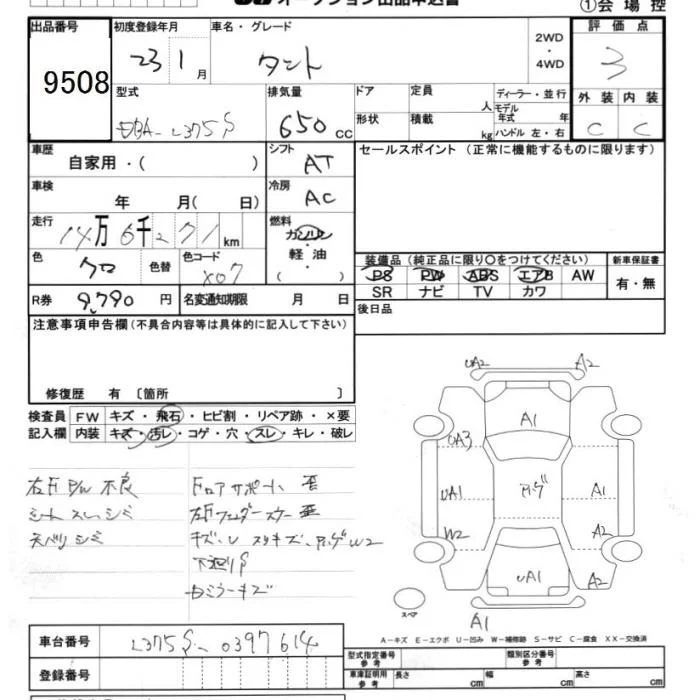 オークション出品申込書 ①会場控
出品番号 初度登録年月 車名・グレード 評価点
9508 23 1 月 タント 2WD ・ 4WD 3
型式 排気量 ドア 定員 人 ディーラー・並行 外装 内装
EBA-L375S 650 cc 形状 積載 kg モデル年式 年 ハンドル 左・右 C C
車歴 シフト セールスポイント (正常に機能するものに限ります)
自家用・( ) AT
車検 年 月( 日) 冷房 AC
走行 14万6千271 km 燃料 ガソリン・軽油 ( )
色 クロ 色替 色コード X07
装備品 (純正品に限り○をつけてください) 新車保証書
PS PW ABS エアB AW 有・無
SR ナビ TV カワ
R券 9,790 円 名変通知期限 月 日 後日品
注意事項申告欄 (不具合内容等は具体的に記入して下さい)
修復歴 有 〔箇所 〕
検査員 FW キズ・飛石・ヒビ割・リペア跡・×要
記入欄 内装 キズ・汚レ・コゲ・穴・スレ・キレ・破レ
左F P/W 不良
シート スレ シミ
天バリ シミ
Fロアサポート 歪
左Fフェンダーステー 歪
下廻りS
UA2 A2
A1
UA3
UA1 A1
W2 A2
UA1 A2
スペア A1
A-キズ E-エクボ U-凹み W-補修跡 S-サビ C-腐食 XX-交換済
車台番号 L375S-0397614
型式指定番号 参考 類別区分番号 参考
登録番号 車庫証明用 参考 長さ cm 幅 cm 高さ cm